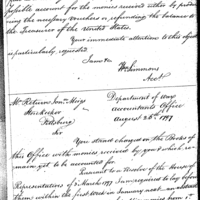 possible account for the monies received either by produc
ing the necessary vouchers or refunding the balance to
the Treasurer of the United States.
Your immediate attention to this object
is particularly requested
I am &c
Wm Simmons
Acct
Mr Return Jona. Meigs
Storekeeper
Pittsburg
Department of War
Accountants Office
August 26th 1797
Sir
You stand charged on the Books of
this Office with monies received by you & which re
main yet to be accounted for.
In answer to a resolve of the House of
Representatives of 3d March 1797 I am required to lay before
them within the first week in January next an abstract